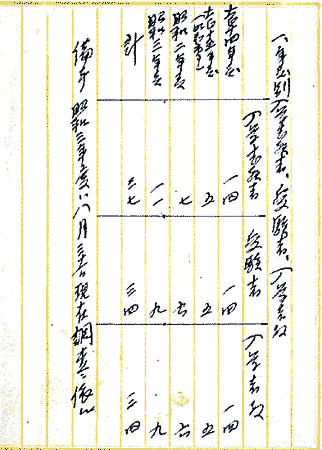 一年度別入学志願者、受験者、入学者数
入学志願者 受験者 入学者数
大正十四年度 一四 一四 一四
大正十五年度 五 五 五
昭和二年度 七 六 六
昭和三年度 一一 九 九
計 三七 三四 三四
備考 昭和三年度ハ八月 現在調査ニ依ル